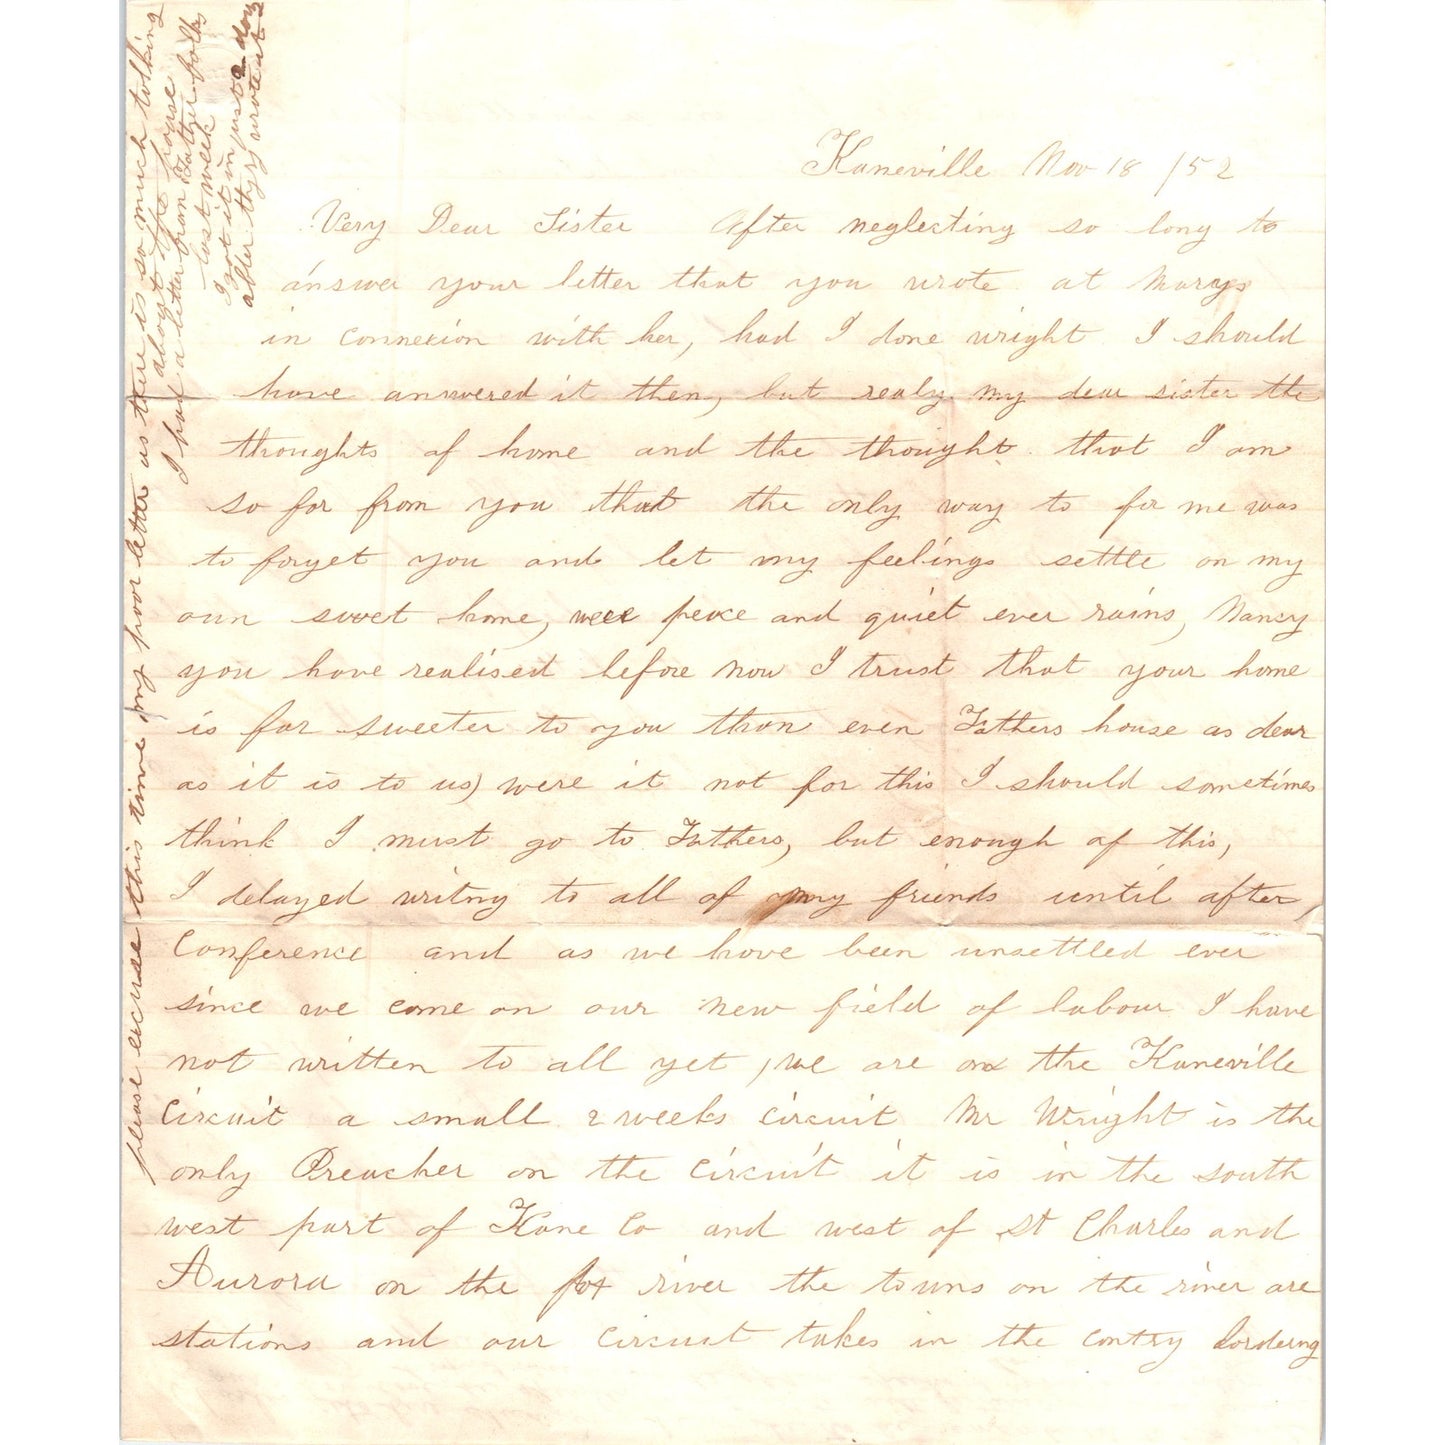 Kaneville Nov 18 /52
Very Dear Sister After neglecting so long to
answer your letter that you wrote at Marys
in connexion with her, had I done wright I should
have answered it then, but realy my dear sister the
thoughts of home and the thought that I am
so far from you that the only way to for me was
to forget you and let my feelings settle on my
own sweet home, were peace and quiet ever rains, Nancy
you have realised before now I trust that your home
is far sweeter to you than even Fathers house as dear
as it is to us) were it not for this I should sometimes
think I must go to Fathers, but enough of this,
I delayed writny to all of my friends until after,
Conference and as we have been unsettled ever
since we come on our new field of labour I have
not written to all yet, we are on the Kaneville
Circuit a small 2 weeks circuit Mr Wright is the
only Preacher on the circuit it is in the south
west part of Kane Co and west of St Charles and
Aurora on the fox river the towns on the river are
stations and our circuit takes in the contry bordering
please excuse this time my poor letter as there is so much tolking
about the house
I had a letter from Father folks
last week
I got it in just 2 days
after they wrote it